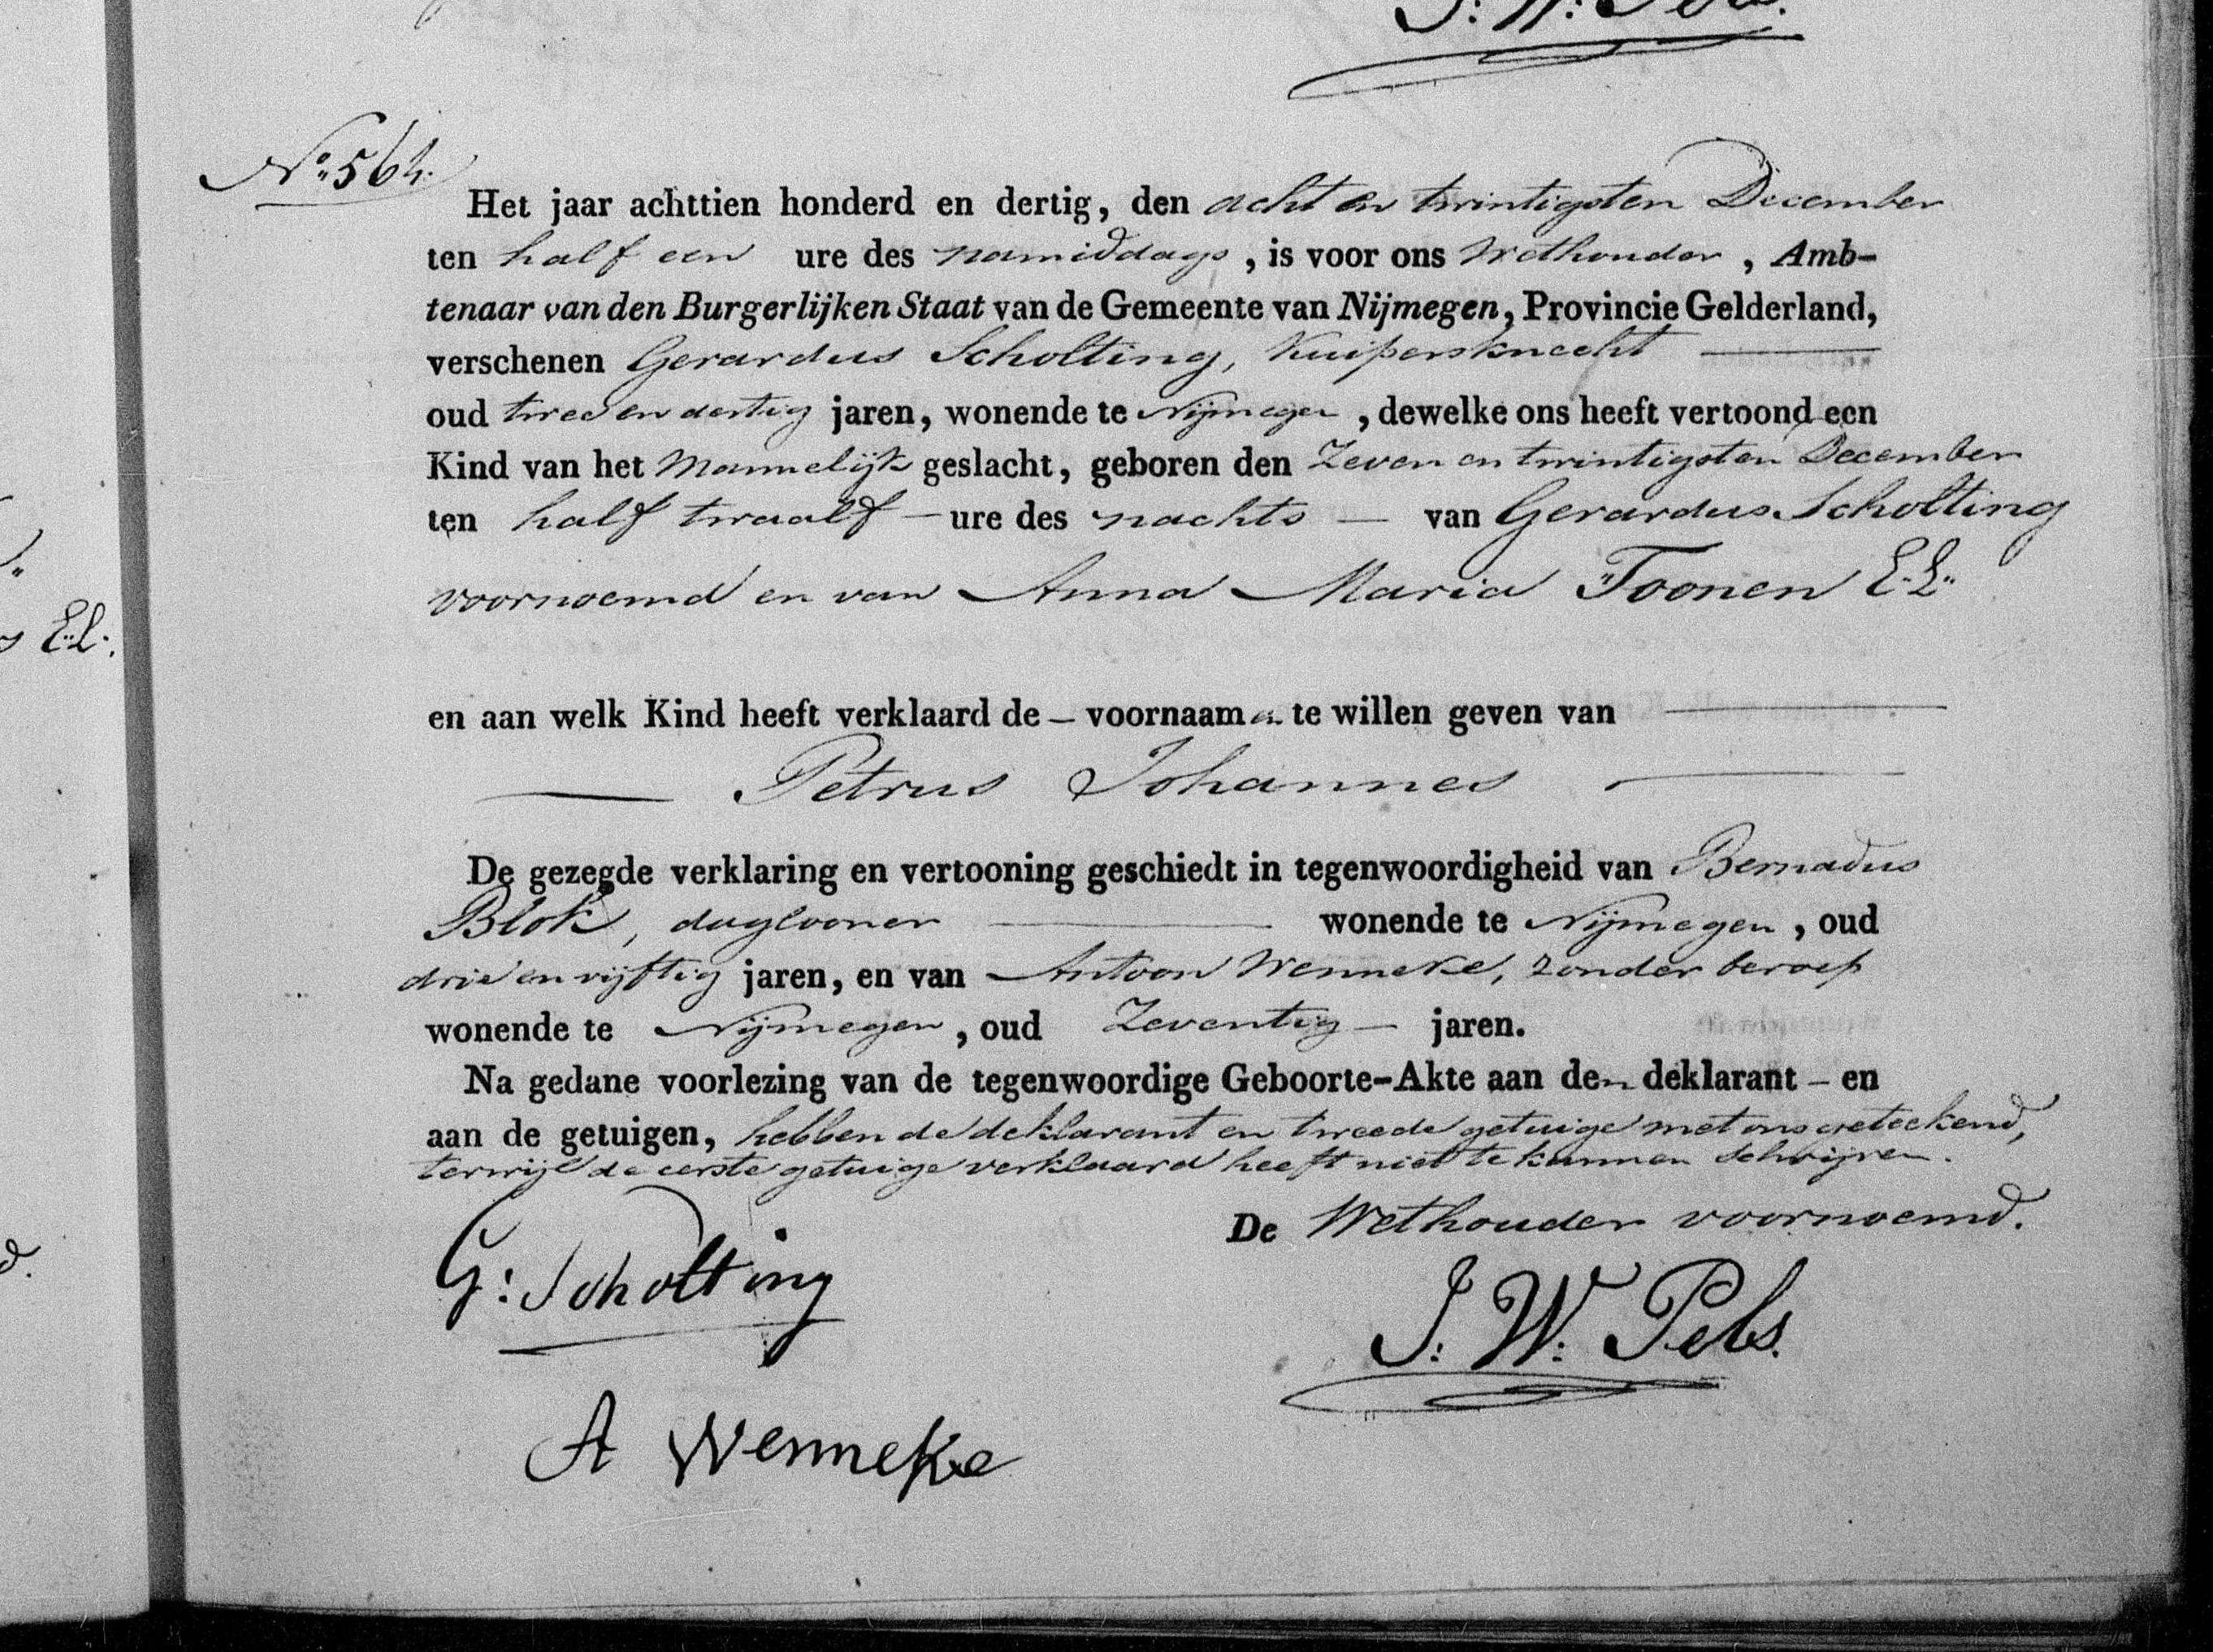 J: W: Pels.
El:
d.
No. 564.
Het jaar achttien honderd en dertig, den acht en twintigsten December
ten half een ure des namiddags, is voor ons Wethouder, Amb-
tenaar van den Burgerlijken Staat van de Gemeente van Nijmegen, Provincie Gelderland,
verschenen Gerardus Scholting, Kuipersknecht
oud twee en dertig jaren, wonende te Nijmegen, dewelke ons heeft vertoond een
Kind van het Mannelijk geslacht, geboren den Zeven en twintigsten December
ten half twaalf - ure des nachts - van Gerardus Scholting
voornoemd en van Anna Maria Toonen E.L.
en aan welk Kind heeft verklaard de - voornaam en te willen geven van
Petrus Johannes
De gezegde verklaring en vertooning geschiedt in tegenwoordigheid van Bernadus
Blok, daglooner wonende te Nijmegen, oud
drie en vijftig jaren, en van Antoon Wenneke, zonder beroep
wonende te Nijmegen, oud Zeventig - jaren.
Na gedane voorlezing van de tegenwoordige Geboorte-Akte aan den deklarant - en
aan de getuigen, hebben de deklarant en tweede getuige met ons geteekend,
terwijl de eerste getuige verklaard heeft niet te kunnen schrijven.
De Wethouder voornoemd.
G: Scholting
J: W: Pels.
A Wenneke